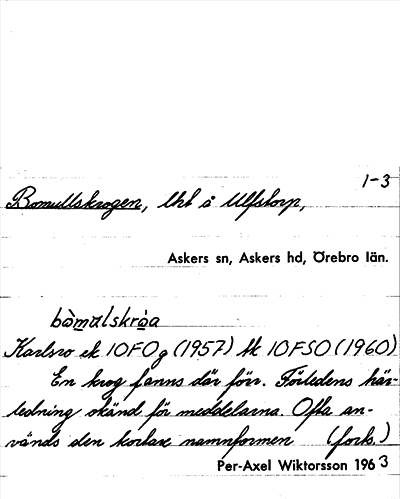 1-3
Bomullskrogen, lht å Ulfstorp,
Askers sn, Askers hd, Örebro län.
bòmulskròa
Karlsro ek 10FOg (1957) tk 10FSO (1960)
En krog fanns där förr. Förledens här-
ledning okänd för meddelarna. Ofta an-
vänds den kortare namnformen (forts.)
Per-Axel Wiktorsson 1963